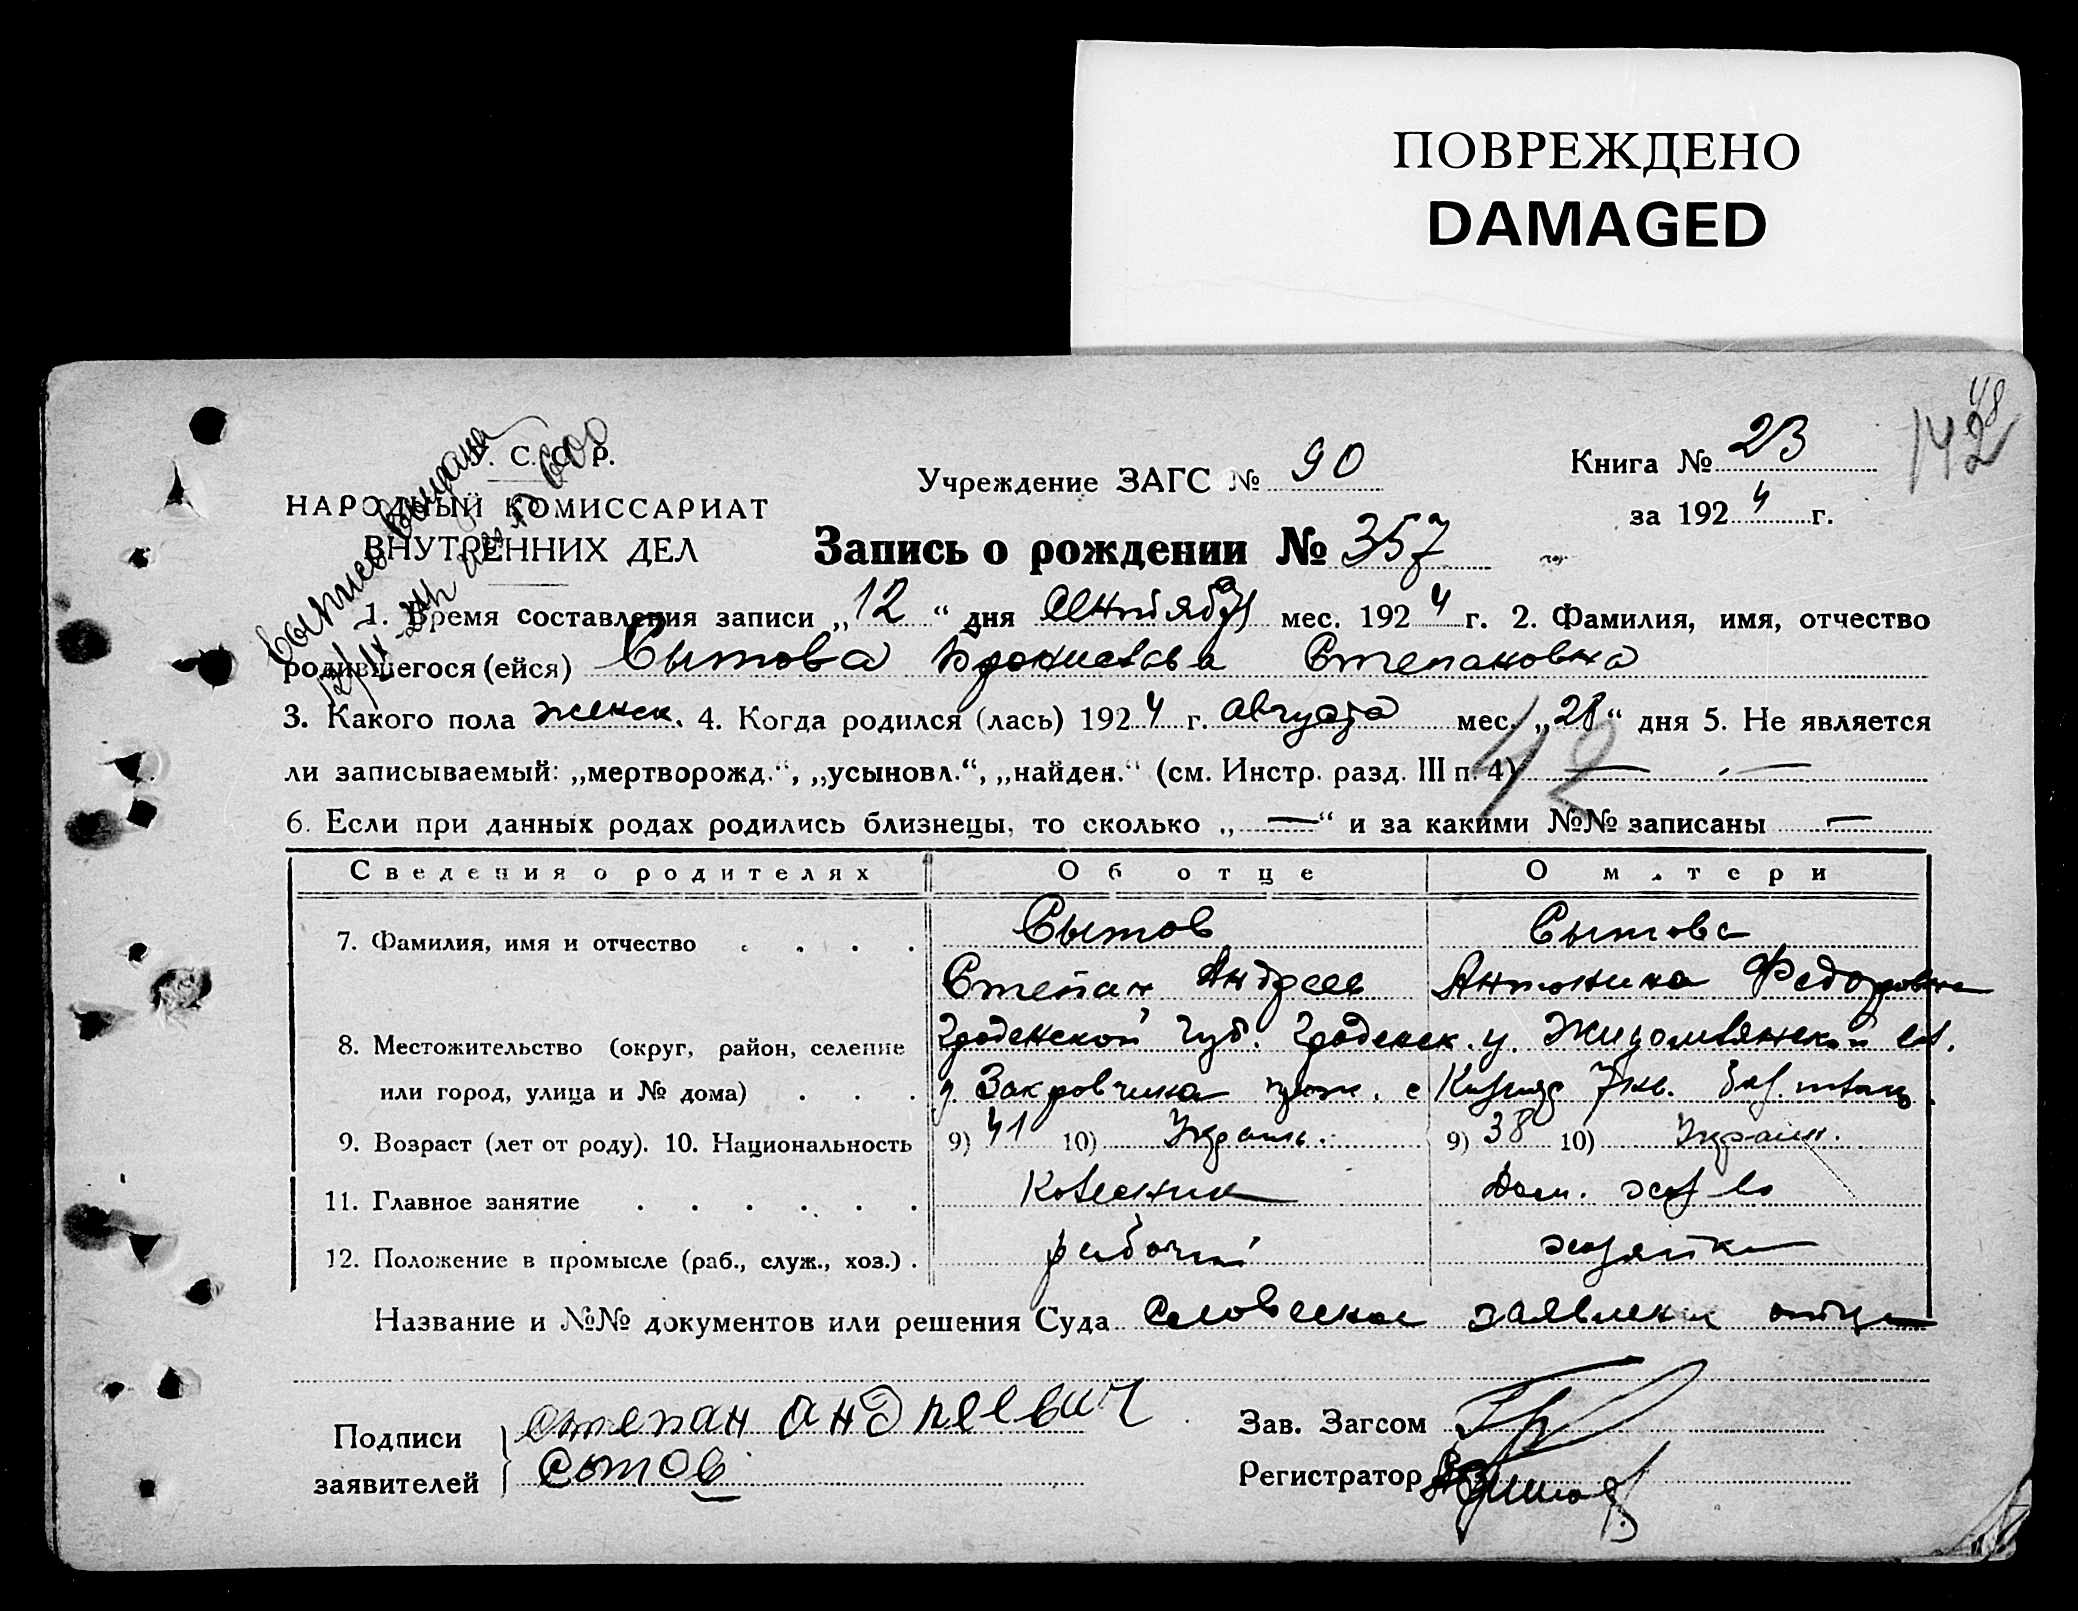 ПОВРЕЖДЕНО
DAMAGED
142
48
С. С. Р.
НАРОДНЫЙ КОМИССАРИАТ
ВНУТРЕННИХ ДЕЛ
Выпись выдана
Учреждение ЗАГС № 90
Книга № 23
за 1924 г.
Запись о рождении № 357
1. Время составления записи „12“ дня Сентября мес. 1924 г. 2. Фамилия, имя, отчество
родившегося (ейся) Сытова Бронислава Степановна
3. Какого пола женск. 4. Когда родился (лась) 1924 г. августа мес. „28“ дня 5. Не является
ли записываемый: „мертворожд.“, „усыновл.“, „найден.“ (см. Инстр. разд. III п. 4) — —
12
6. Если при данных родах родились близнецы, то сколько „—“ и за какими №№ записаны —
Сведения о родителях Об отце О матери
7. Фамилия, имя и отчество . . . . Сытов Сытова
Степан Андреев Антонина Федоровна
8. Местожительство (округ, район, селение Гроденской губ. Гроденск. у.
или город, улица и № дома) . . . д. Закровчина
9. Возраст (лет от роду). 10. Национальность 9) 41 10) Украин. 9) 38 10) Украин.
11. Главное занятие . . . . . . Колесник Дом. хоз во
12. Положение в промысле (раб., служ., хоз.) . рабочий хозяйка
Название и №№ документов или решения Суда Словесное заявление отца
Подписи степан андреевич
заявителей сытов
Зав. Загсом
Регистратор